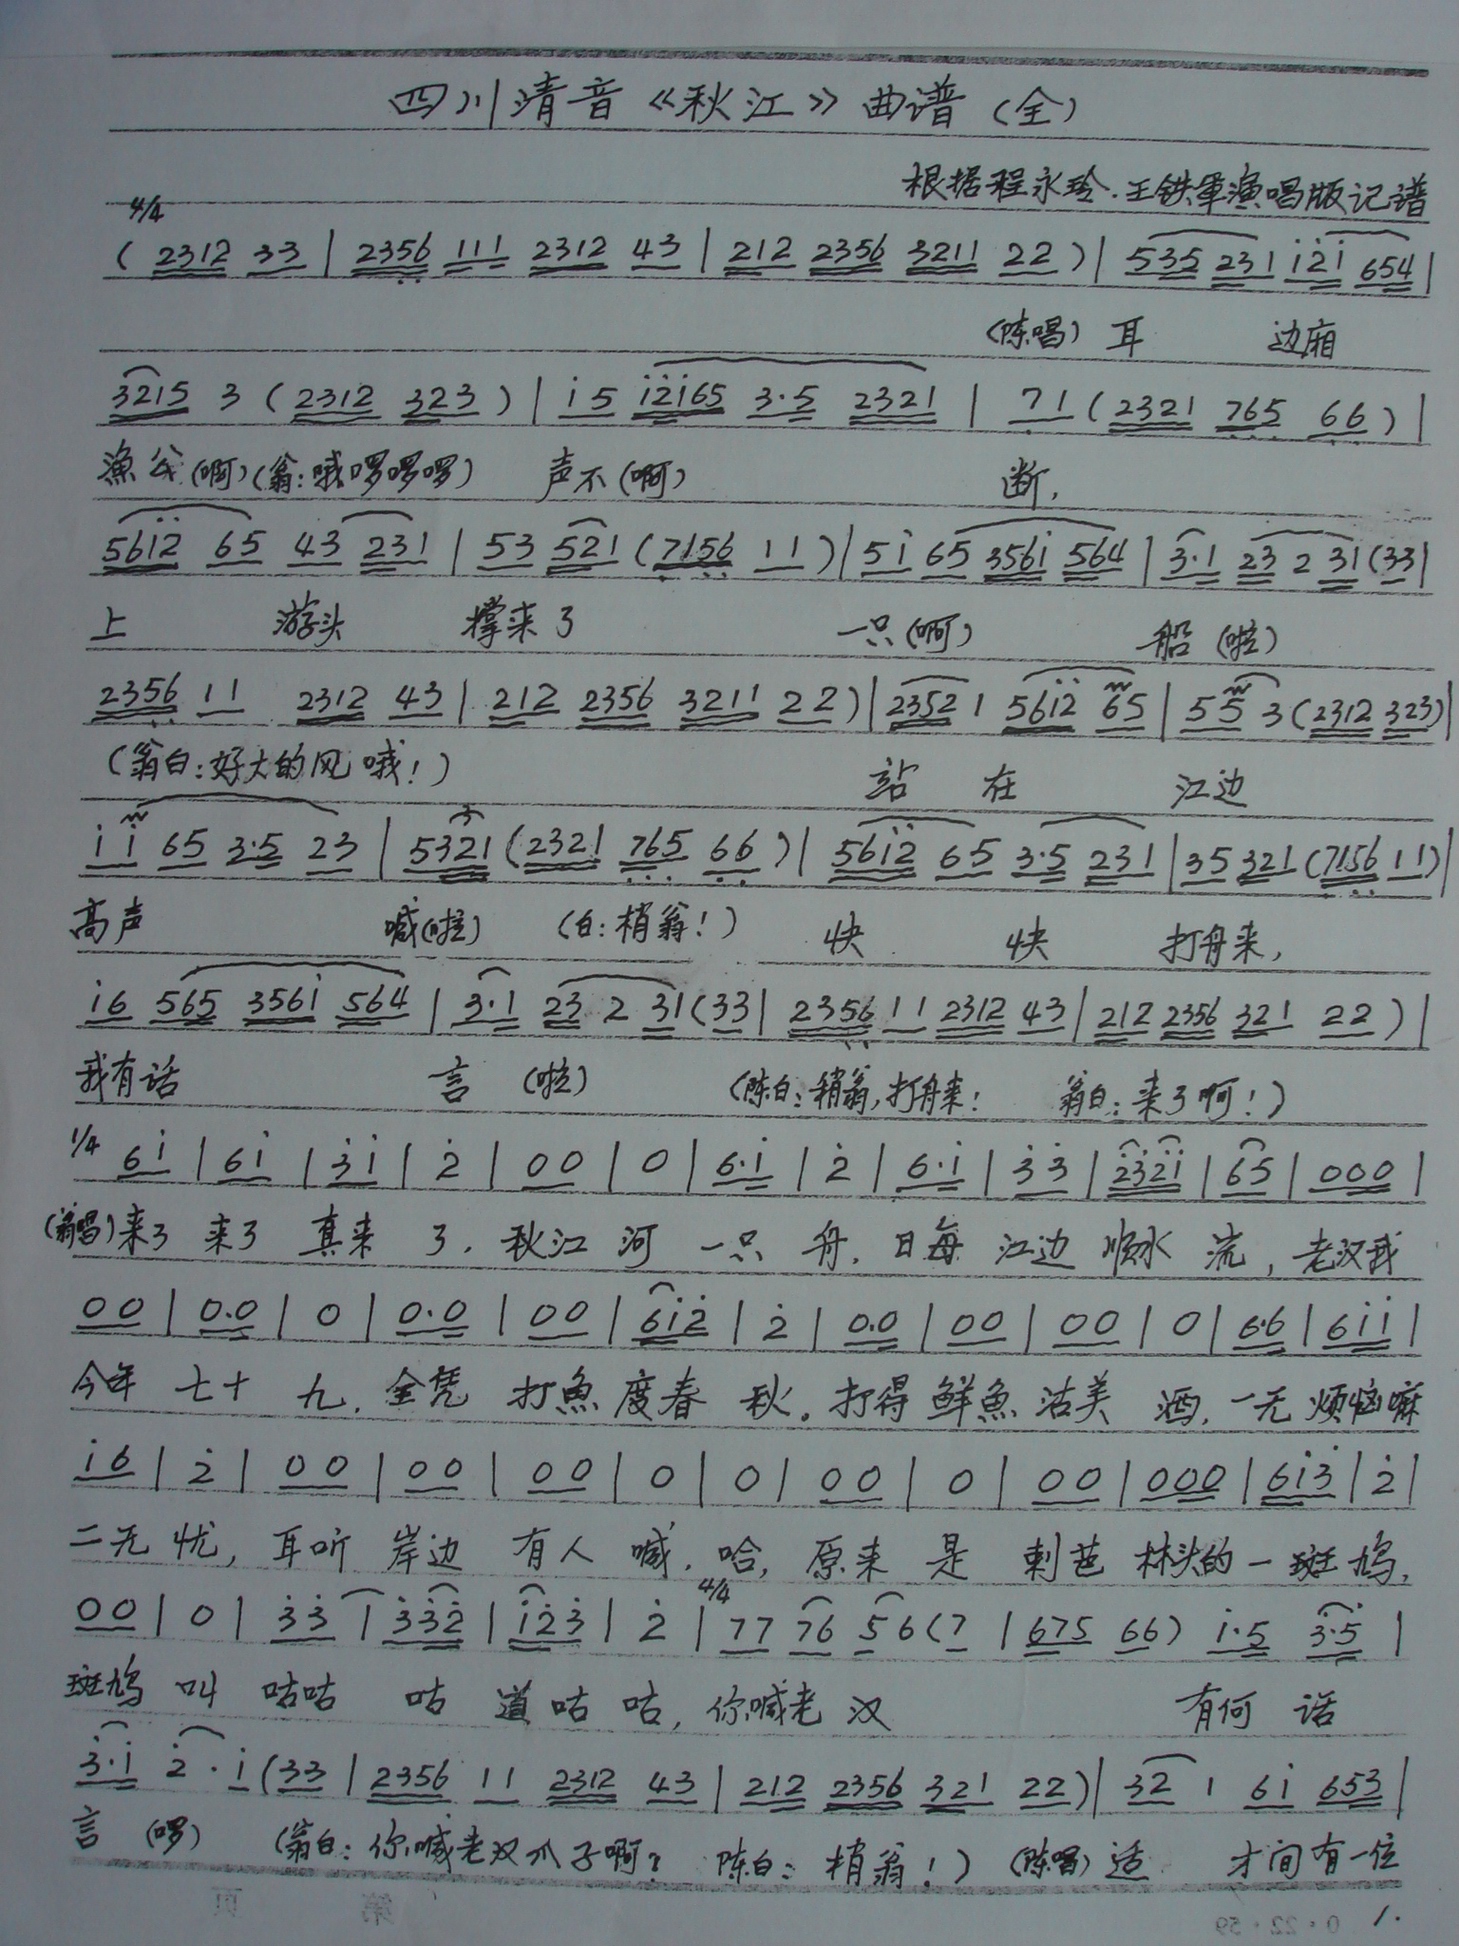 四川清音《秋江》曲谱（全）
根据程永玲.王铁军演唱版记谱
4/4
( 2312 33 | 2356 111 2312 43 | 212 2356 3211 22 ) | 535 231 i2i 654 |
(陈唱) 耳 边厢
3215 3 ( 2312 323 ) | i5 i2i65 3·5 2321 | 71 ( 2321 765 66 ) |
漁公(啊)(翁:哦啰啰啰) 声不(啊) 断,
56i2 65 43 231 | 53 521 ( 7156 11 ) | 5i 65 356i 564 | 3·1 23 2 31 (33 |
上 游头 撑来了 一只(啊) 船(啦)
2356 11 2312 43 | 212 2356 3211 22 ) | 2352 1 56i2 65 | 55 3 ( 2312 323 ) |
(翁白:好大的风哦!) 站 在 江边
ii 65 3·5 23 | 5321 ( 2321 765 66 ) | 56i2 65 3·5 231 | 35 321 ( 7156 11 ) |
高声 喊(啦) (白:梢翁!) 快 快 打舟来,
i6 565 356i 564 | 3·1 23 2 31 (33 | 2356 11 2312 43 | 212 2356 321 22 ) |
我有话 言 (啦) (陈白:稍翁,打舟来! 翁白:来了啊!)
1/4 6i | 6i | 3i | 2 | 00 | 0 | 6·i | 2 | 6·i | 33 | 232i | 65 | 000 |
(翁唱)来了 来了 真来 了. 秋江 河 一只 舟. 日每 江边 顺水 流, 老汉我
00 | 0.0 | 0 | 0.0 | 00 | 6i2 | 2 | 0.0 | 00 | 00 | 0 | 6·6 | 6ii |
今年 七十 九. 全凭 打魚 度春 秋。打得 鲜魚 沽美 酒, 一无 烦恼嘛
i6 | 2 | 00 | 00 | 00 | 0 | 0 | 00 | 0 | 00 | 000 | 6i3 | 2 |
二无 忧, 耳听 岸边 有人 喊. 哈, 原来 是 刺芭 林头的 一斑 鸠,
00 | 0 | 33 | 332 | i23 | 2 | 4/4 77 76 56 (7 | 675 66 ) i·5 3·5 |
斑鸠 叫 咕咕 咕 道咕 咕, 你喊老 汉 有何 话
3·i 2·i (33 | 2356 11 2312 43 | 212 2356 321 22 ) | 32 1 6i 653 |
言 (啰) (翁白: 你喊老汉爪子啊? 陈白: 梢翁!) (陈唱) 适 才间有一位
第 页
0·22·59
1.